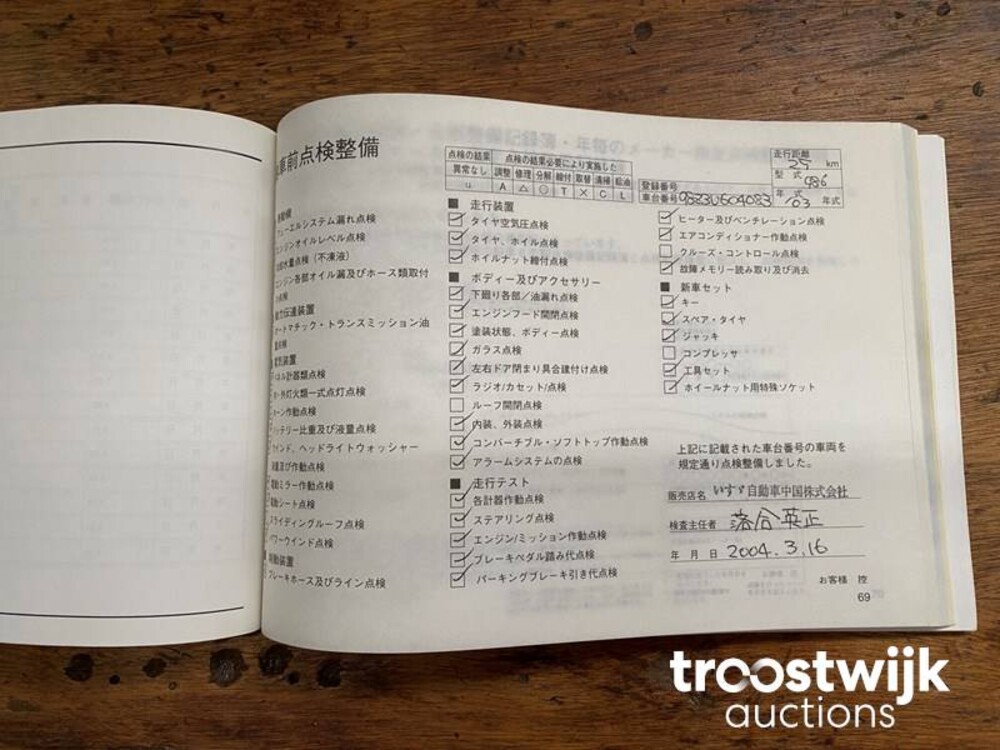 車前点検整備
点検の結果 点検の結果必要により実施した
異常なし 調整 修理 分解 締付 取替 清掃 給油
u A △ ○ T × C L
走行距離 25 km
型式 986
登録番号
車台番号 98Z3U604083 年式 '03 年式
フューエルシステム漏れ点検
エンジンオイルレベル点検
却水量点検(不凍液)
エンジン各部オイル漏及びホース類取付
動力伝達装置
オートマチック・トランスミッション油
電気装置
ネル計器類点検
外灯火類一式点灯点検
ホーン作動点検
バッテリー比重及び液量点検
ウインド、ヘッドライトウォッシャー
液量及び作動点検
電動ミラー作動点検
電動シート点検
スライディングルーフ点検
パワーウインド点検
制動装置
ブレーキホース及びライン点検
■ 走行装置
タイヤ空気圧点検
タイヤ、ホイル点検
ホイルナット締付点検
■ ボディー及びアクセサリー
下廻り各部/油漏れ点検
エンジンフード開閉点検
塗装状態、ボディー点検
ガラス点検
左右ドア閉まり具合建付け点検
ラジオ/カセット/点検
ルーフ開閉点検
内装、外装点検
コンバーチブル・ソフトトップ作動点検
アラームシステムの点検
■ 走行テスト
各計器作動点検
ステアリング点検
エンジン/ミッション作動点検
ブレーキペダル踏み代点検
パーキングブレーキ引き代点検
ヒーター及びベンチレーション点検
エアコンディショナー作動点検
クルーズ・コントロール点検
故障メモリー読み取り及び消去
■ 新車セット
キー
スペア・タイヤ
ジャッキ
コンプレッサ
工具セット
ホイールナット用特殊ソケット
上記に記載された車台番号の車両を
規定通り点検整備しました。
販売店名 いすゞ自動車中国株式会社
検査主任者 落合 英正
年 月 日 2004. 3. 16
お客様 控
69
troostwijk
auctions